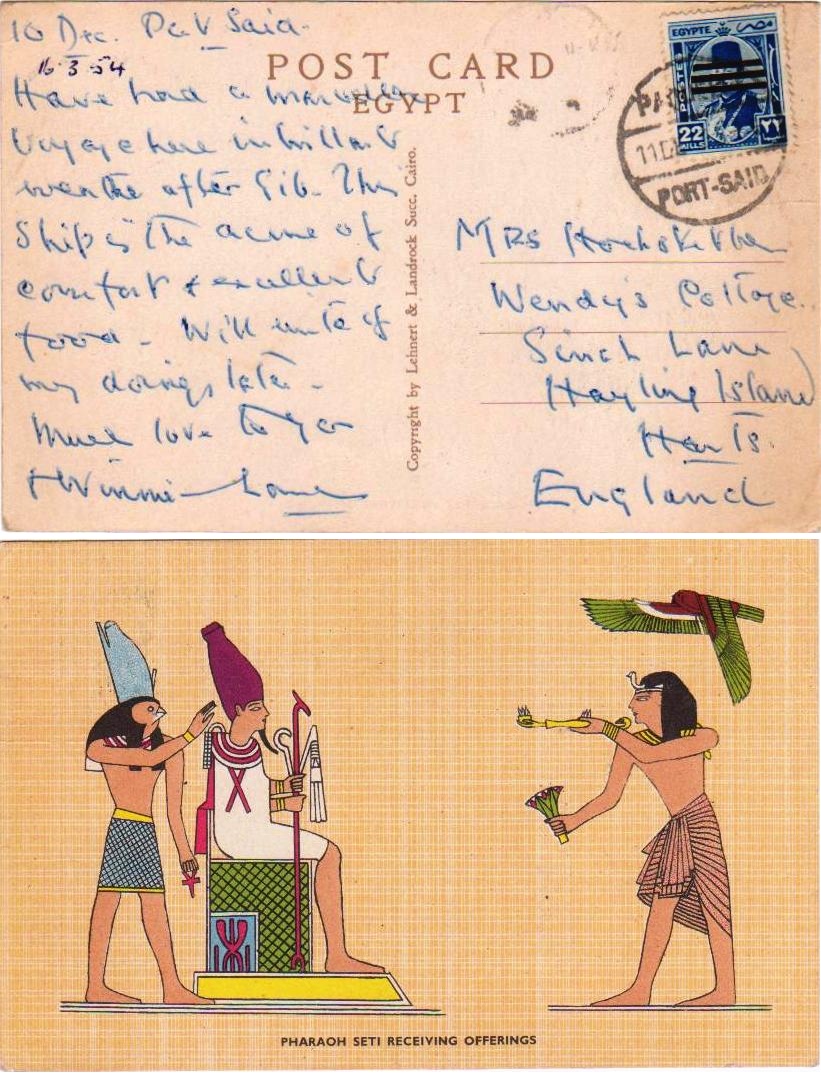 10 Dec. Port Said.
16-3-54
POST CARD
EGYPT
Have had a marvellous
voyage here in brilliant
weather after Gib. This
Ship is the acme of
comfort & excellent
food - Will write of
my doings later -
Much love to you
Winnie
Copyright by Lehnert & Landrock Succ. Cairo.
EGYPTE مصر
POSTES
22
MILLS
٢٢
PORT-SAID
Mrs
Wendy's Cottage.
Sinah Lane
Hayling Island
Hants.
England
PHARAOH SETI RECEIVING OFFERINGS